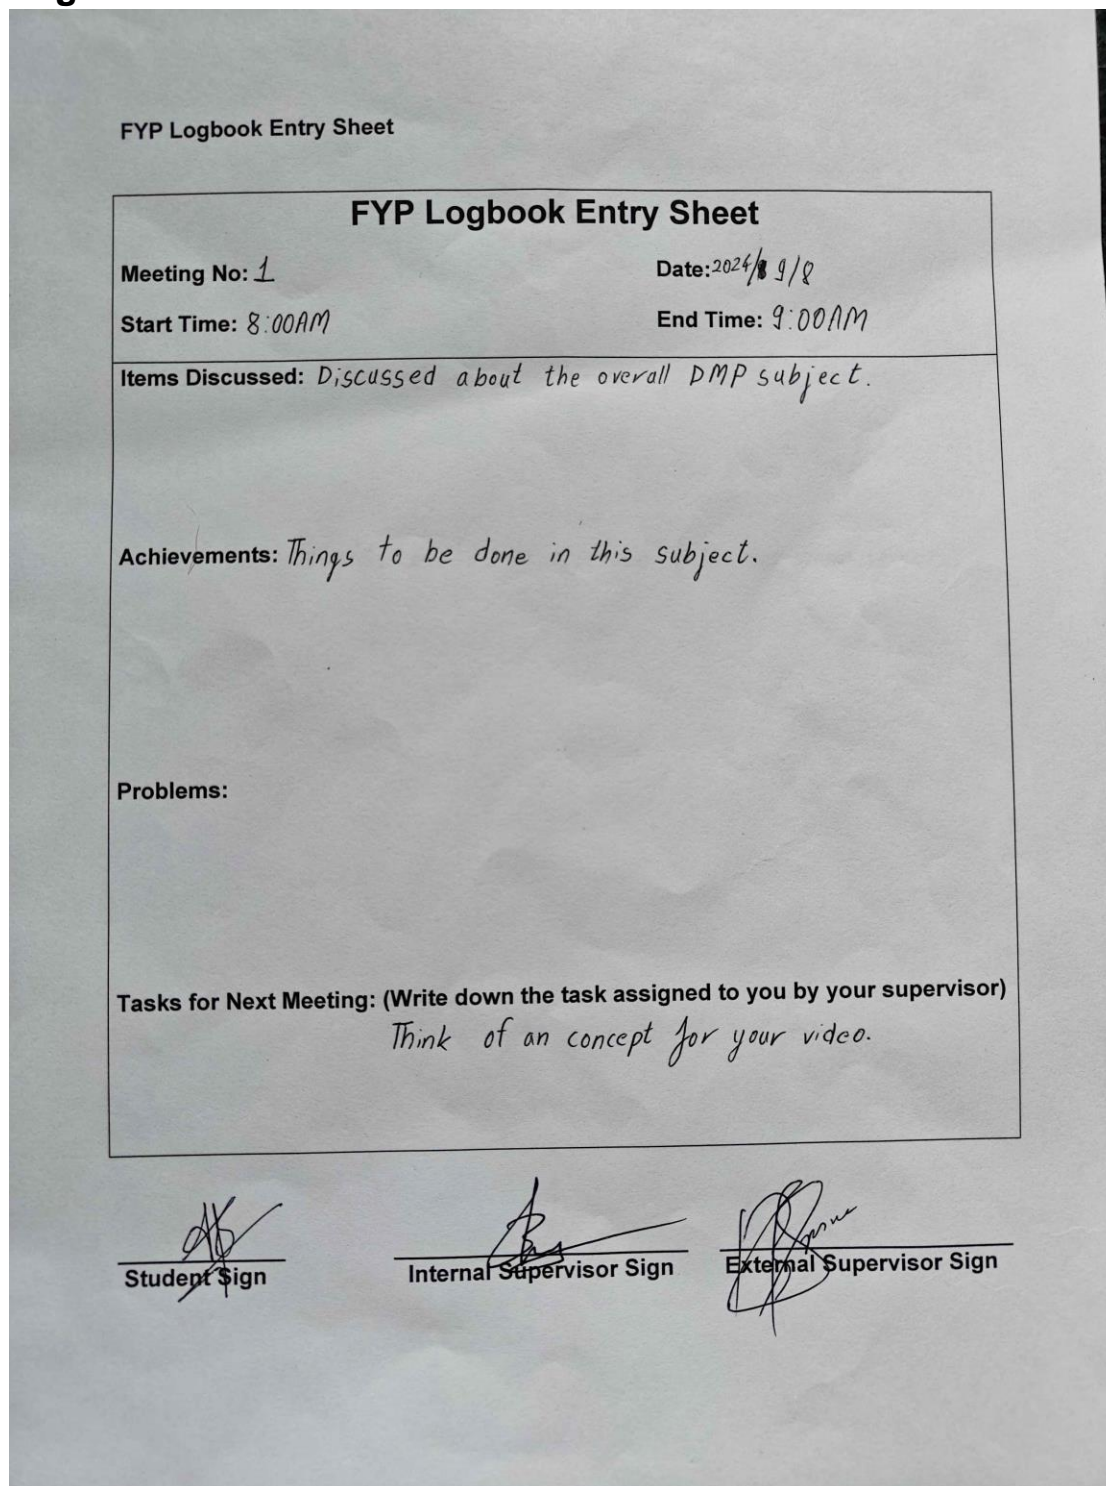 FYP Logbook Entry Sheet
FYP Logbook Entry Sheet
Meeting No: 1
Date: 2024/ 9/8
Start Time: 8:00AM
End Time: 9:00AM
Items Discussed: Discussed about the overall DMP subject.
Achievements: Things to be done in this subject.
Problems:
Tasks for Next Meeting: (Write down the task assigned to you by your supervisor)
Think of an concept for your video.
Student Sign
Internal Supervisor Sign
External Supervisor Sign